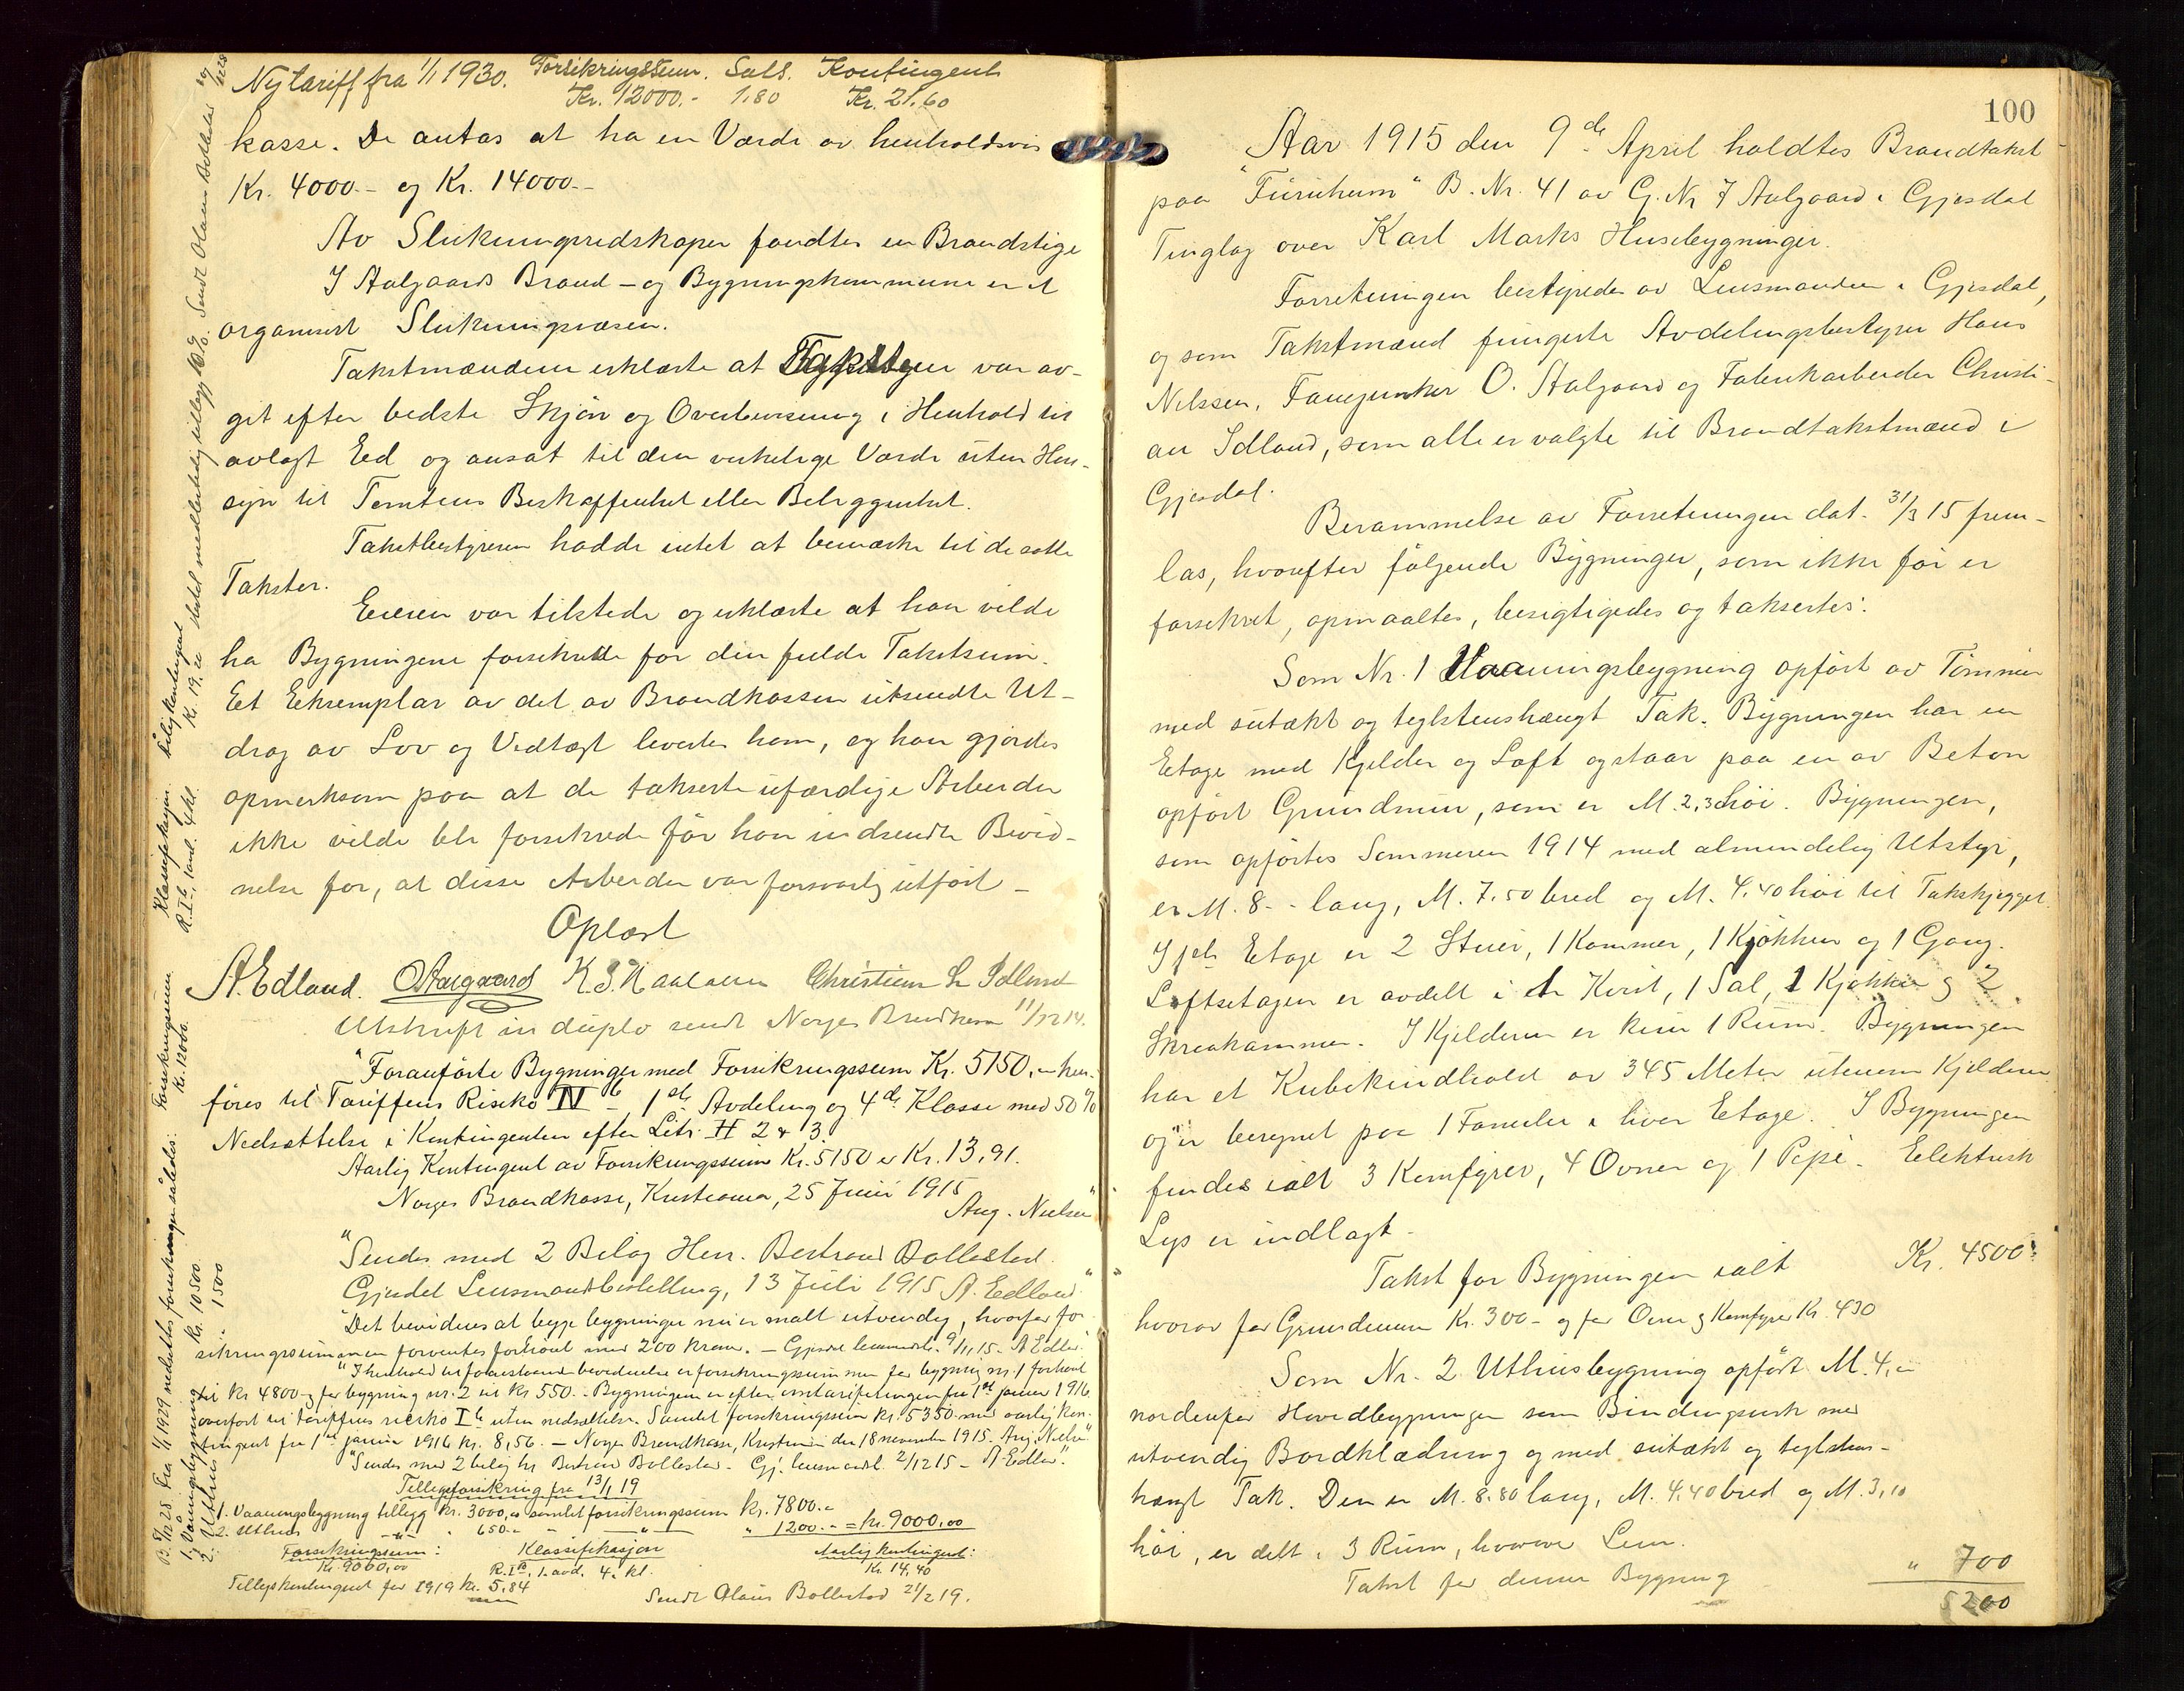 Ny tariff fra 1/1 1930. Forsikringssum. Sats. Kontingent
Kr. 12000.- 1.80 Kr. 21.60
kasse. De antas at ha en Værdi av henholdsvis
Kr. 4000.- og Kr. 14000.-
Av Slukningsredskaper fandtes en Brandstige
I Aalgaards Brand- og Bygningskommune er et
organisert Slukningsvæsen.
Takstmændene erklærte at Taksten var av-
git efter bedste Skjøn og Overbevisning i Henhold til
avlagt Eed og ansat til den virkelige Værdi uten Hen-
syn til Tomtens Beskaffenhet eller Beliggenhet.
Takstbestyreren hadde intet at bemærke til de satte
Takster.
Eieren var tilstede og erklærte at han vilde
ha Bygningene forsikrede for den fulde Takstsum.
Et Eksemplar av det av Brandkassen utsendte Ut-
drag av Lov og Vedtægt levertes ham, og han gjordes
opmerksom paa at de takserte uferdige Arbeider
ikke vilde bli forsikrede før han indsendte Bevid-
nelse for, at disse Arbeider var forsvarlig utført -
Oplæst
A. Edland. O Aalgaard K. S. Christian L Idland
Utskrift in duplo sendt Norges Brandkasse 11/12 14.
"Foranførte Bygninger med Forsikringssum Kr. 5150,- hen-
føres til Tariffens Risiko IV b - 1ste Avdeling og 4de Klasse med 50%
Nedsættelse i Kontingenten efter Litr. H 2 & 3.
Aarlig Kontingent av Forsikringssum Kr. 5150 er Kr. 13,91.
Norges Brandkasse, Kristiania, 25 Juni 1915
Aug. Nielsen"
"Sendes med 2 Bilag Herr. Bertrand Bollestad.
Gjesdal Lensmandsbestilling, 13 Juli 1915 A. Edland"
"Det bevidnes at begge bygninger nu er malt utvendig, hvorfor for-
sikringssummen forventes forhøiet med 200 kroner. - Gjesdal lensmandsb. 9/11 15 - A Edland"
"I henhold til foranstaaende bevidnelse er forsikringssummen for bygning nr. 1 forhøiet
til kr 4800 og for bygning nr. 2 til kr 550. - Bygningene er efter omtarifferingen fra 1ste januar 1916
overført til tariffens risiko I b uten nedsættelse. Samlet forsikringssum kr. 5350 med aarlig kon-
tingent fra 1ste januar 1916 kr. 8,56. - Norges Brandkasse, Kristiania den 18 november 1915. Aug. Nielsen"
"Sendes med 2 bilag hr Bertrand Bollestad - Gj. lensmandsb. 2/12 15 - A Edland".
Tillægsforsikring fra 13/1 19
1. Vaaningsbygning tillegg kr. 3000,00 samlet forsikringssum kr. 7800.-
2. Uthus -"- " 650.- - -"- " 1200.- = kr. 9000,00
Forsikringssum: Klassifikasjon Aarlig kontingent:
Kr. 9000,00 R. I b, 1. avd. 4. kl. Kr. 14,40
Tillægskontingent for 1919 kr. 5,84
Sendt Olaus Bollestad 21/2 19.
B. 5/12 28. Fra 1/1 1929 nedsattes forsikringen således: Forsikringssum Klassifikasjon. Årlig kontingent
1. Våningsbygning Kr. 10500 Kr. 12000. R. I b, 1 avd. 4 kl. Kr. 19,20
2. Uthus " 1500
100
Aar 1915 den 9de April holdtes Brandtakst
paa "Furuheim" B. Nr. 41 av G. Nr 7 Aalgaard i Gjesdal
Tinglag over Karl Marks Husebygninger.
Forretningen bestyredes av Lensmanden i Gjesdal,
og som Takstmænd fungerte Avdelingsbestyrer Hans
Nilssen, Fanejunker O. Aalgaard og Fabrikarbeider Christi-
an Idland, som alle er valgte til Brandtakstmænd i
Gjesdal.
Berammelse av Forretningen dat. 31/3 15 frem-
las, hvorefter følgende Bygninger, som ikke før er
forsikret, opmaaltes, besigtigedes og taksertes:
Som Nr. 1 Vaaningsbygning opført av Tømmer
med sutækt og teglstenshængt Tak. Bygningen har en
Etage med Kjelder og Loft og staar paa en av Beton
opført Grundmur, som er M. 2,30 høi. Bygningen,
som opførtes Sommeren 1914 med almindelig Utstyr,
er M. 8.- lang, M. 7.50 bred og M. 4.40 høi til Takskjegget.
I 1ste Etage er 2 Stuer, 1 Kammer, 1 Kjøkken og 1 Gang.
Loftsetagen er avdelt i 1 Kvist, 1 Sal, 1 Kjøkken og 2
Skraakammer. I Kjelderen er kun 1 Rum. Bygningen
har et Kubikindhold av 345 Meter utenom Kjelderen
og er beregnet paa 1 Familie i hver Etage. I Bygningen
findes ialt 3 Komfyrer, 4 Ovner og 1 Pipe. Elektrisk
Lys er indlagt.
Takst for Bygningen ialt Kr. 4500.
hvorav for Grundmuren Kr. 300 - og for Ovner og Komfyrer Kr. 430
Som Nr. 2 Uthusbygning opført M. 4,-
nordenfor Hovedbygningen som Bindingsverk med
utvendig Bordklædning og med sutækt og teglstens-
hængt Tak. Den er M. 8.80 lang, M. 4.40 bred og M. 3,10
høi, er delt i 3 Rum, hvorover Lem.
Takst for denne Bygning " 700
5200